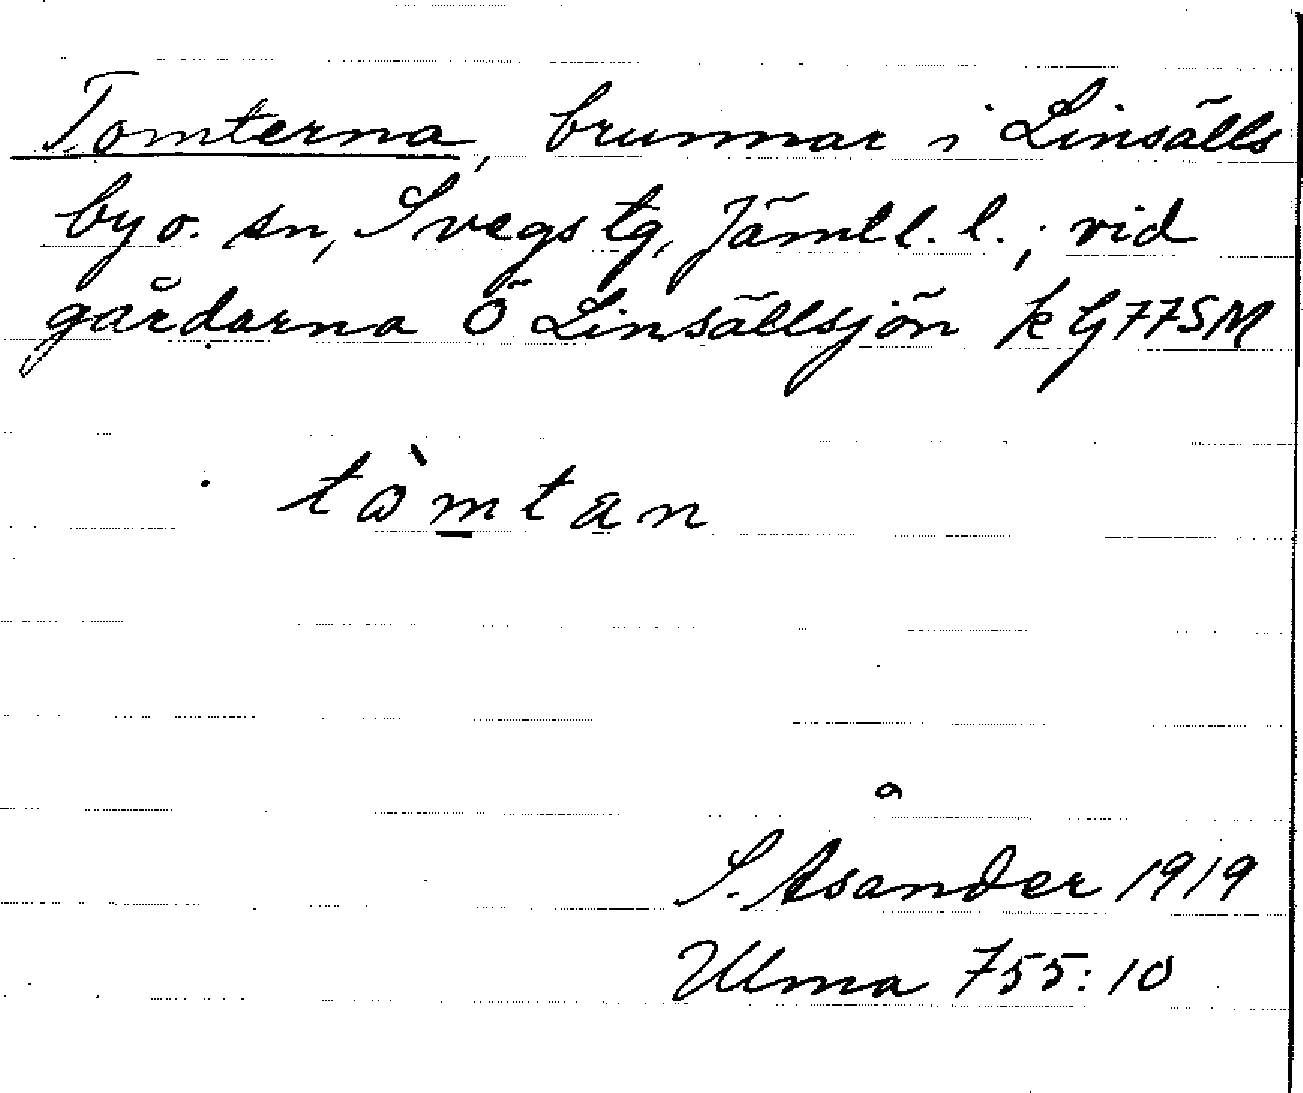 Tomterna, brunnar i Linsälls
by o. sn, Svegs tg, Jämtl. l.; vid
gårdarna Ö Linsällsjön kG77SM
tòmtan
S. Åsander 1919
Ulma 755:10